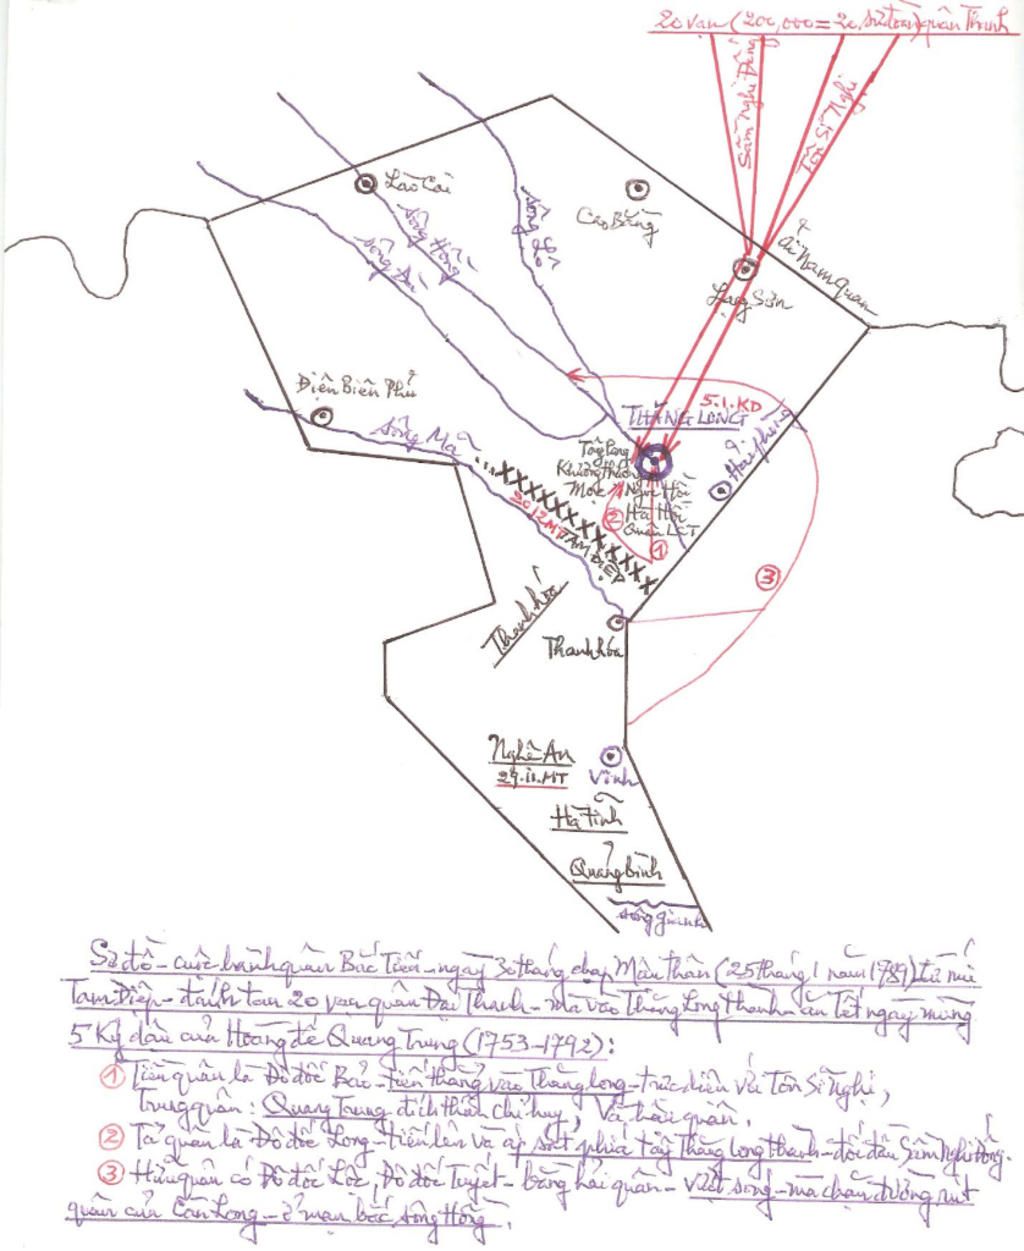 20 vạn (200,000 = 20 sư đoàn) quân Thanh
Sầm Nghi Đống
Tôn Sĩ Nghị
Lào Cai
Cao Bằng
Sông Hồng
Sông Đà
Sông Lô
ải Nam quan
Lạng Sơn
Điện Biên Phủ
Sông Mã
5.1.KD
THĂNG LONG
Hải phòng
Khương thượng
Ngọc Hồi
Hà Hồi
Quân LCT
2
1
3
20.12MT
TAM ĐIỆP
Thanh hóa
Thanh hóa
Nghệ An
29.11.MT
Vinh
Hà Tĩnh
Quảng Bình
sông gianh
Sơ đồ - cuộc hành quân Bắc Tiến - ngày 30 tháng chạp Mậu Thân (25 tháng 1 năm 1789) từ núi
Tam Điệp - đánh tan 20 vạn quân Đại Thanh - mà vào Thăng Long thành - ăn Tết ngày mùng
5 Kỷ dậu của Hoàng đế Quang Trung (1753-1792):
1 Tiền quân là Đô đốc Bảo - tiến thẳng vào Thăng long - trực diện với Tôn Sĩ Nghị,
Trung quân: Quang Trung đích thân chỉ huy, Và hậu quân.
2 Tả quân là Đô đốc Long - tiến lên và áp sát phía tây Thăng long thành - đối đầu Sầm Nghi Đống.
3 Hữu quân có Đô đốc Lộc, Đô đốc Tuyết - bằng hải quân - vượt sông - mà chặn đường rút
quân của Càn Long - ở mạn bắc sông Hồng.